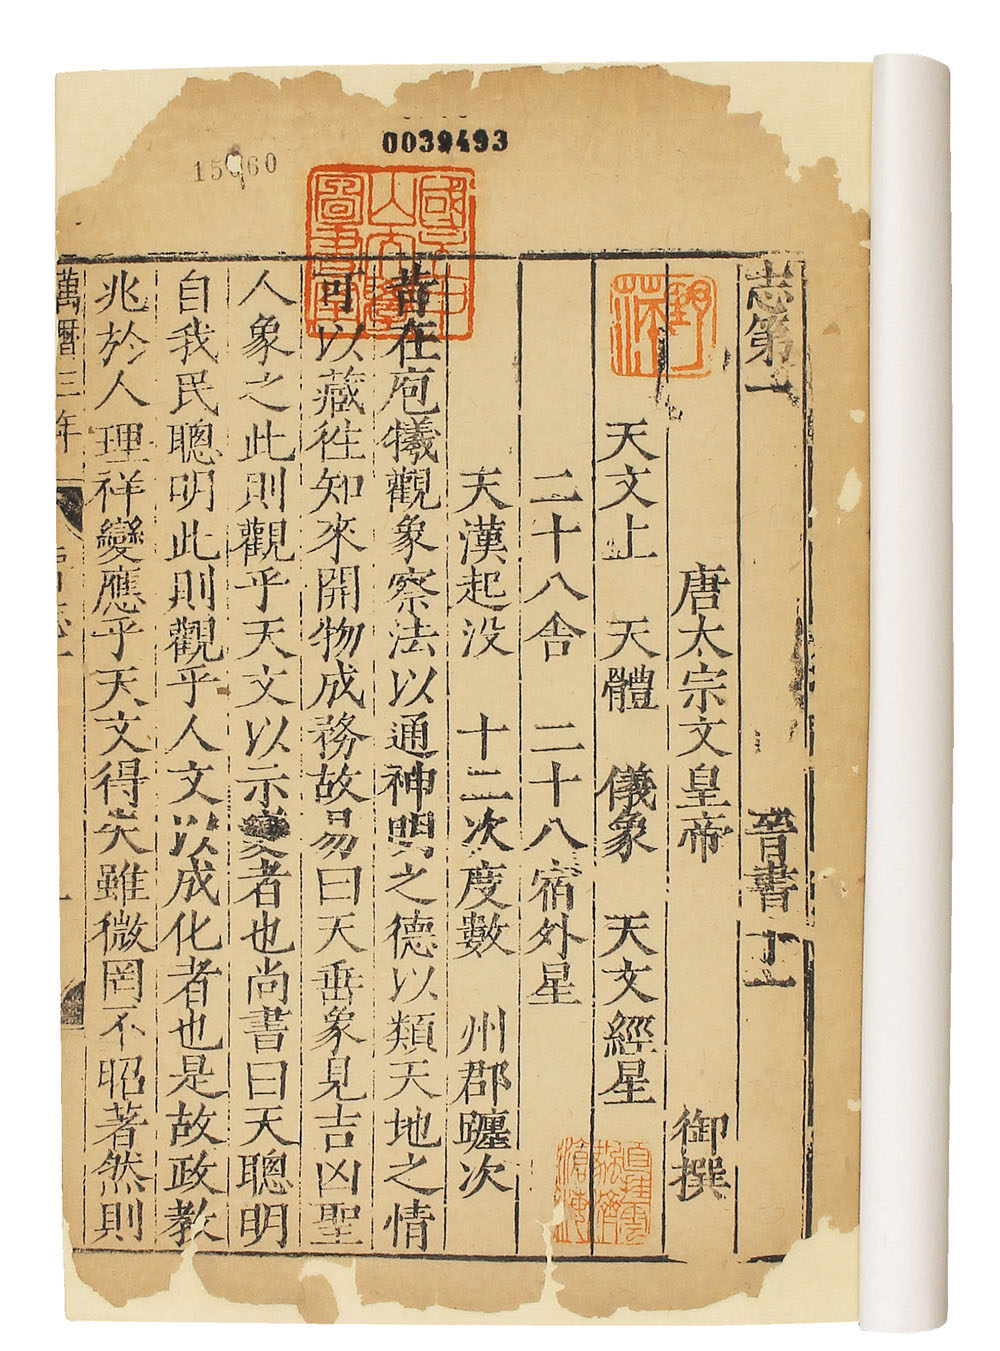 0039493
15 60
志第一 晉書十一
唐太宗文皇帝 御撰
天文上 天體 儀象 天文經星
二十八舍 二十八宿外星
天漢起没 十二次度數 州郡躔次
昔在庖犧觀象察法以通神明之德以類天地之情
可以藏徃知來開物成務故易曰天垂象見吉凶聖
人象之此則觀乎天文以示變者也尚書曰天聰明
自我民聰明此則觀乎人文以成化者也是故政教
兆於人理祥變應乎天文得失雖微罔不昭著然則
萬曆三年